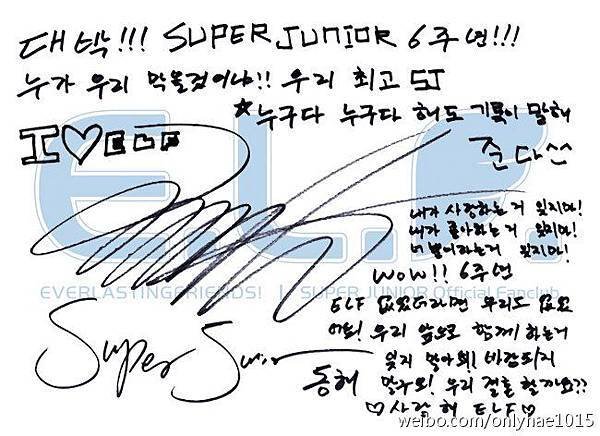 대박!!! SUPER JUNIOR 6주년!!!
누가 우리 막을것이냐!! 우리 최고 SJ
★누구다 누구다 해도 기록이 말해
준다^^
I♡ELF
E.L.F.
내가 사랑하는거 잊지마!
내가 좋아하는거 잊지마!
너뿐이라는거 잊지마!
WOW!! 6주년
EVERLASTINGFRIENDS! | SUPER JUNIOR Official Fanclub
ELF 없었더라면 우리도 없었
어요! 우리 앞으로 함께 하는거
잊지 말아요! 바람피지
말구요! 우리 결혼 할까요??
♡사랑해 ELF♡
Super Junior
동해
weibo.com/onlyhae1015